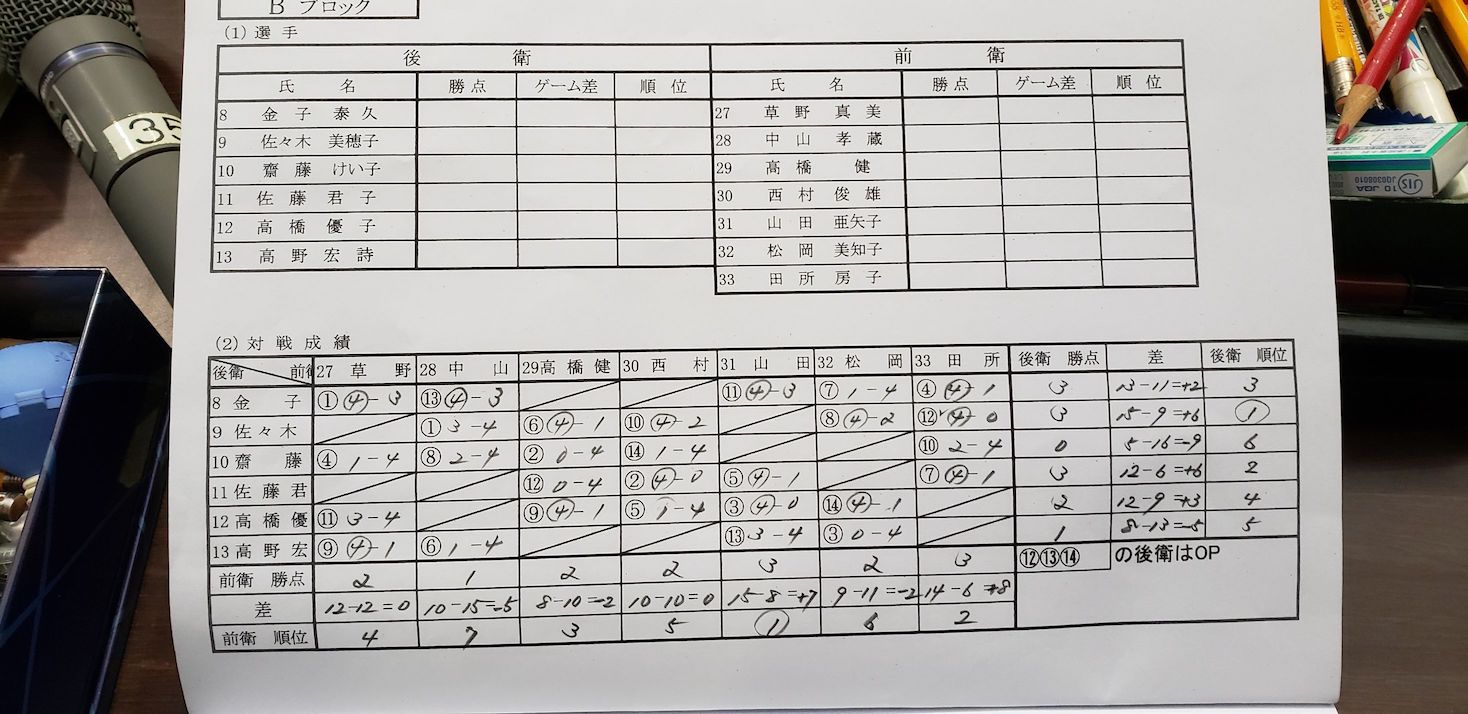 B ブロック
(1) 選手
後衛 前衛
氏名 勝点 ゲーム差 順位 氏名 勝点 ゲーム差 順位
8 金子 泰久 27 草野 真美
9 佐々木 美穂子 28 中山 孝蔵
10 齋藤 けい子 29 高橋 健
11 佐藤 君子 30 西村 俊雄
12 高橋 優子 31 山田 亜矢子
13 高野 宏詩 32 松岡 美知子
33 田所 房子
(2) 対戦成績
後衛 前衛 27 草野 28 中山 29高橋健 30 西村 31 山田 32 松岡 33 田所 後衛 勝点 差 後衛 順位
8 金子 ①④-3 ⑬④-3 ⑪④-3 ⑦1-4 ④④-1 3 13-11=+2 3
9 佐々木 ①3-4 ⑥④-1 ⑩④-2 ⑧④-2 ⑫④-0 3 15-9=+6 ①
10 齋藤 ④1-4 ⑧2-4 ②0-4 ⑭1-4 ⑩2-4 0 5-16=-9 6
11 佐藤君 ⑫0-4 ②④-0 ⑤④-1 ⑦④-1 3 12-6=+6 2
12 高橋優 ⑪3-4 ⑨④-1 ⑤1-4 ③④-0 ⑭④-1 2 12-9=+3 4
13 高野宏 ⑨④-1 ⑥1-4 ⑬3-4 ③0-4 1 8-13=-5 5
前衛 勝点 2 1 2 2 3 2 3 ⑫⑬⑭ の後衛はOP
差 12-12=0 10-15=-5 8-10=-2 10-10=0 15-8=+7 9-11=-2 14-6=+8
前衛 順位 4 7 3 5 ① 6 2
35
JIS
10 JQA
JQ0308010